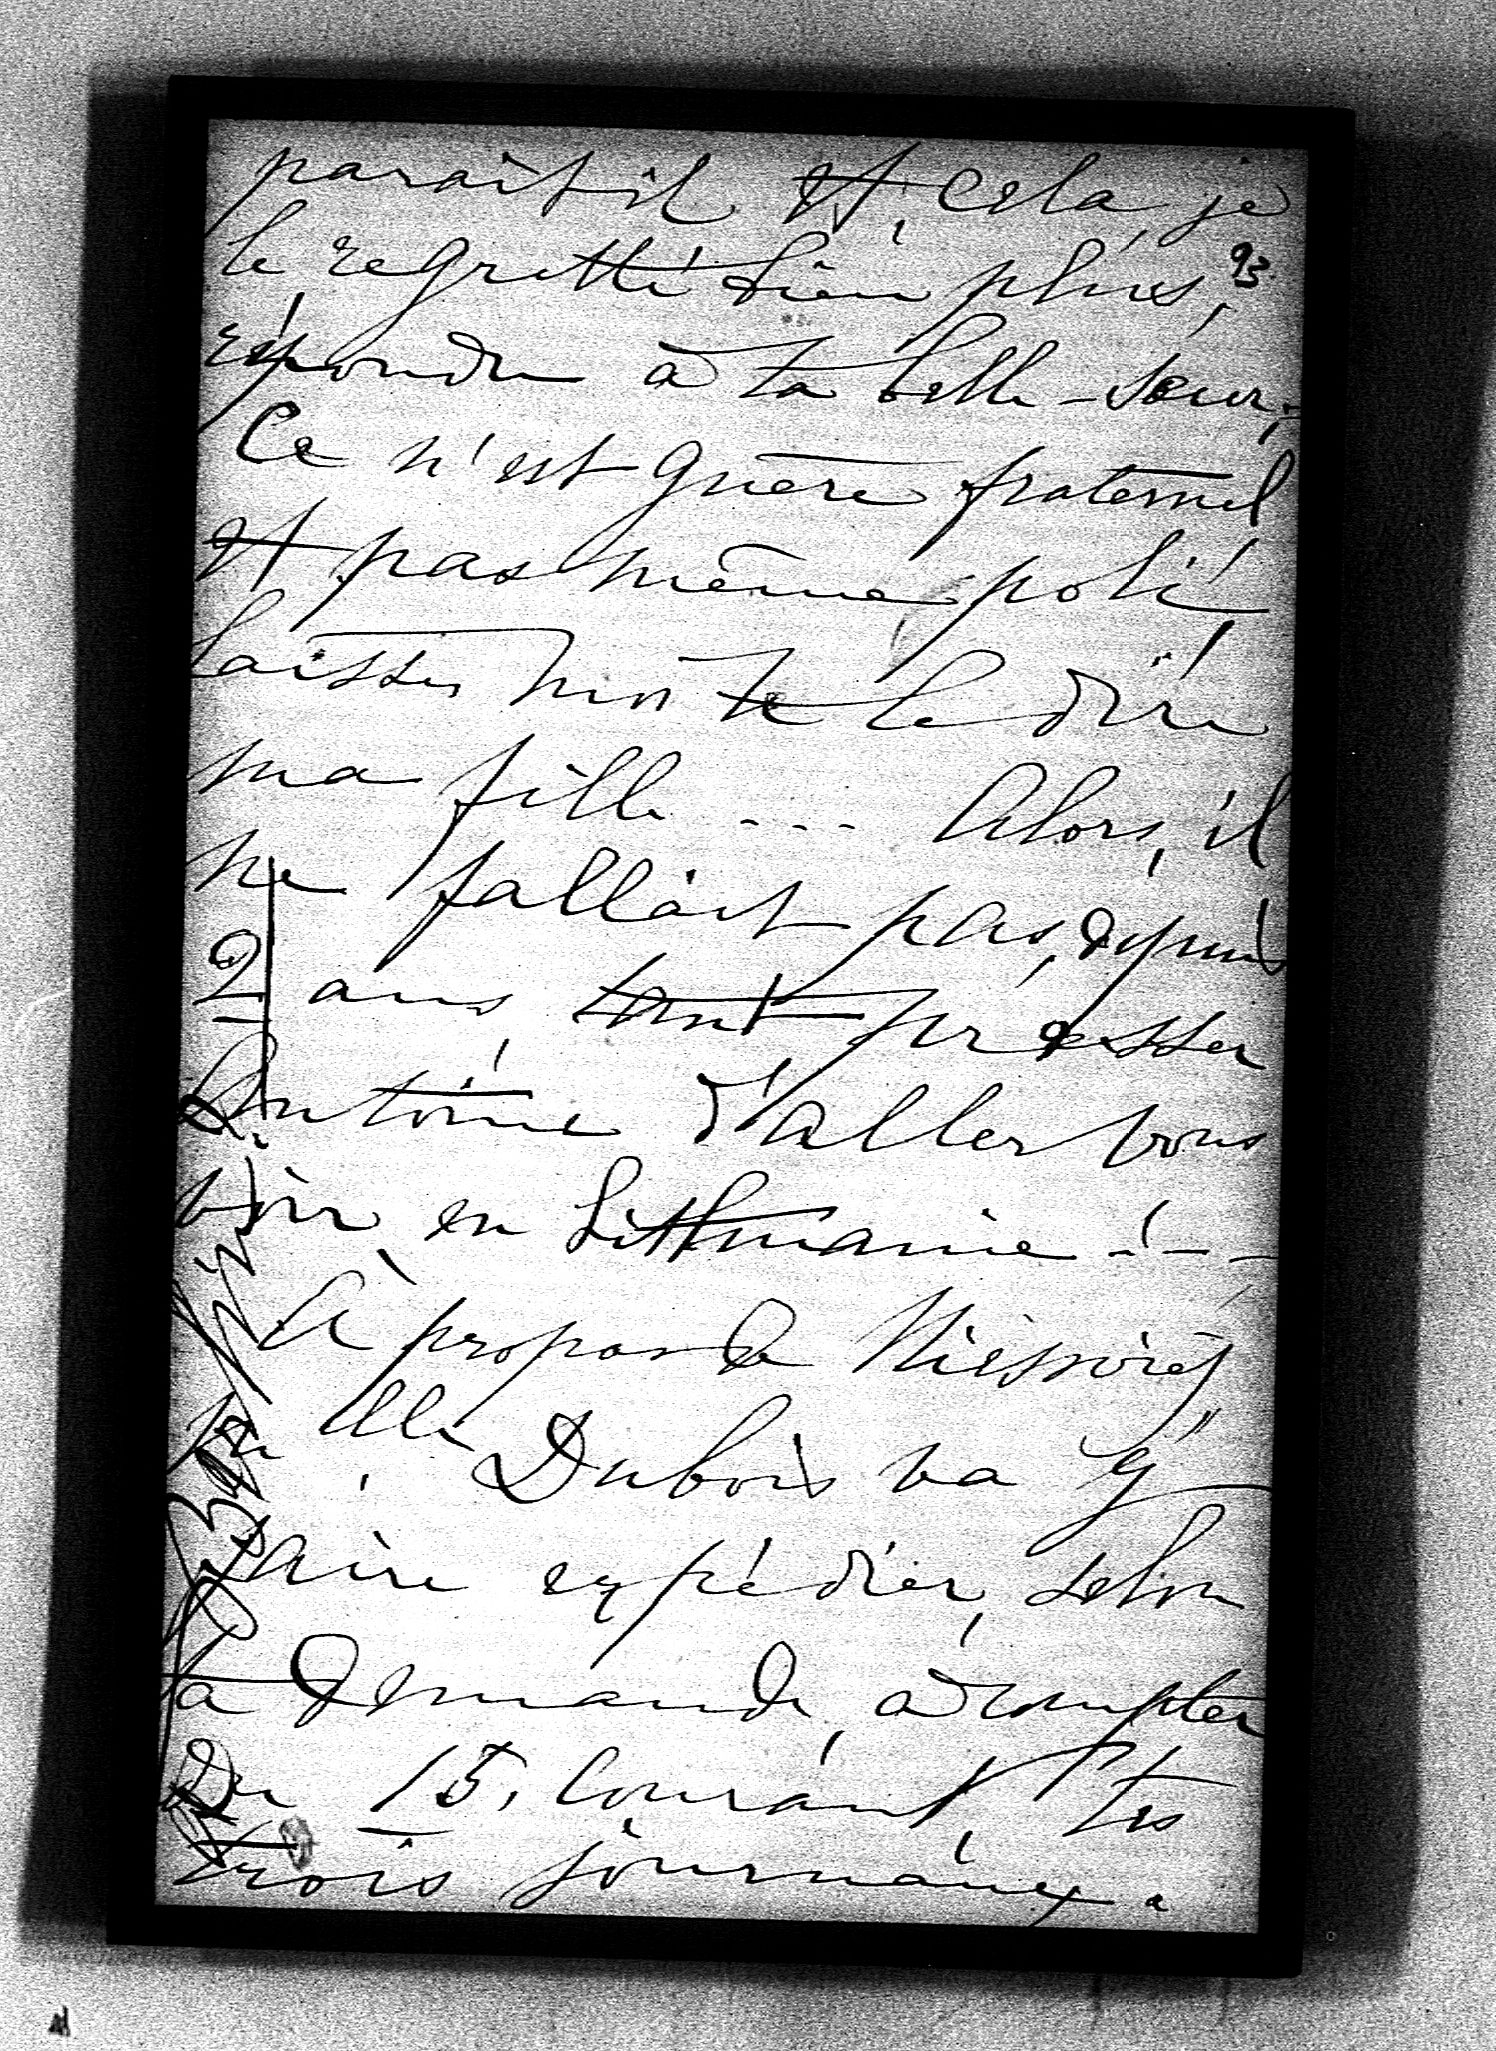 paraît-il et, cela, je
le regrette bien plus,
93
répondu à ta belle-sœur.
Ce n'est guère fraternel
et pas même poli,
laisses moi te le dire
ma fille ... Alors, il
ne fallait pas, depuis
2 ans, tant presser
Antoine d'aller vous
voir, en Litthuanie !---
À propos de Nieswiez,
Dubois va y
faire expédier, selon
ta demande, à compter
du 15, courant tes
trois journaux.